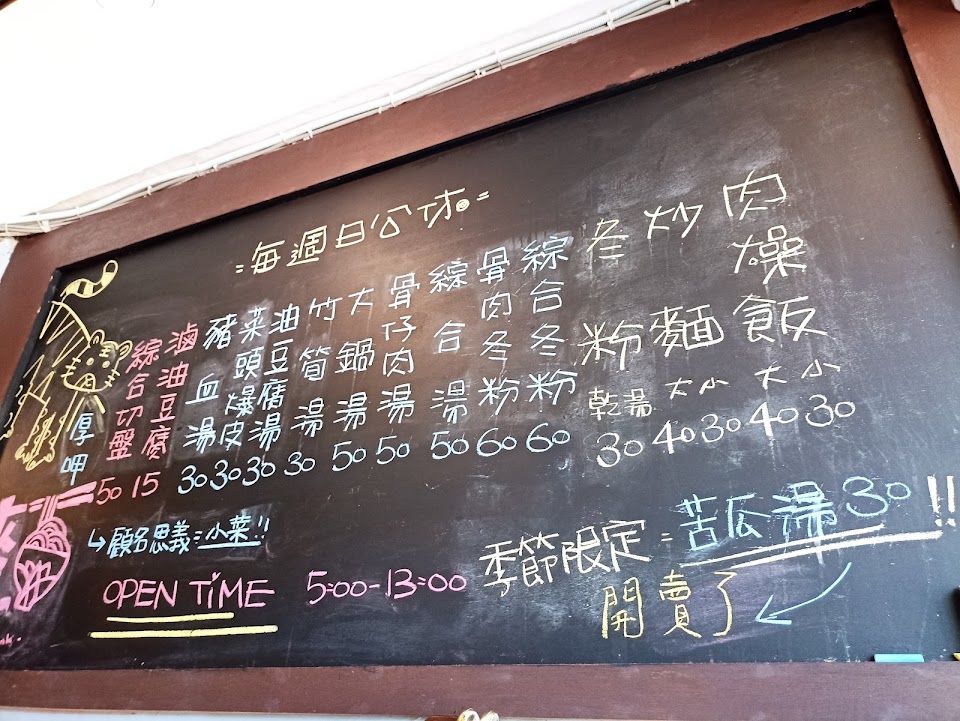 =每週日公休=
肉燥飯 大 小 40 30
炒麵 大 小 40 30
冬粉 乾 湯 30
綜合冬粉 60
骨肉冬粉 60
綜合湯 50
骨仔肉湯 50
大鍋湯 50
竹筍湯 30
油豆腐湯 30
菜頭爆皮 30
豬血湯 30
滷油豆腐 15
綜合切盤 50
厚呷
顧名思義=小菜!!
OPEN TiME 5:00-13:00
季節限定=苦瓜湯30!!
開賣了